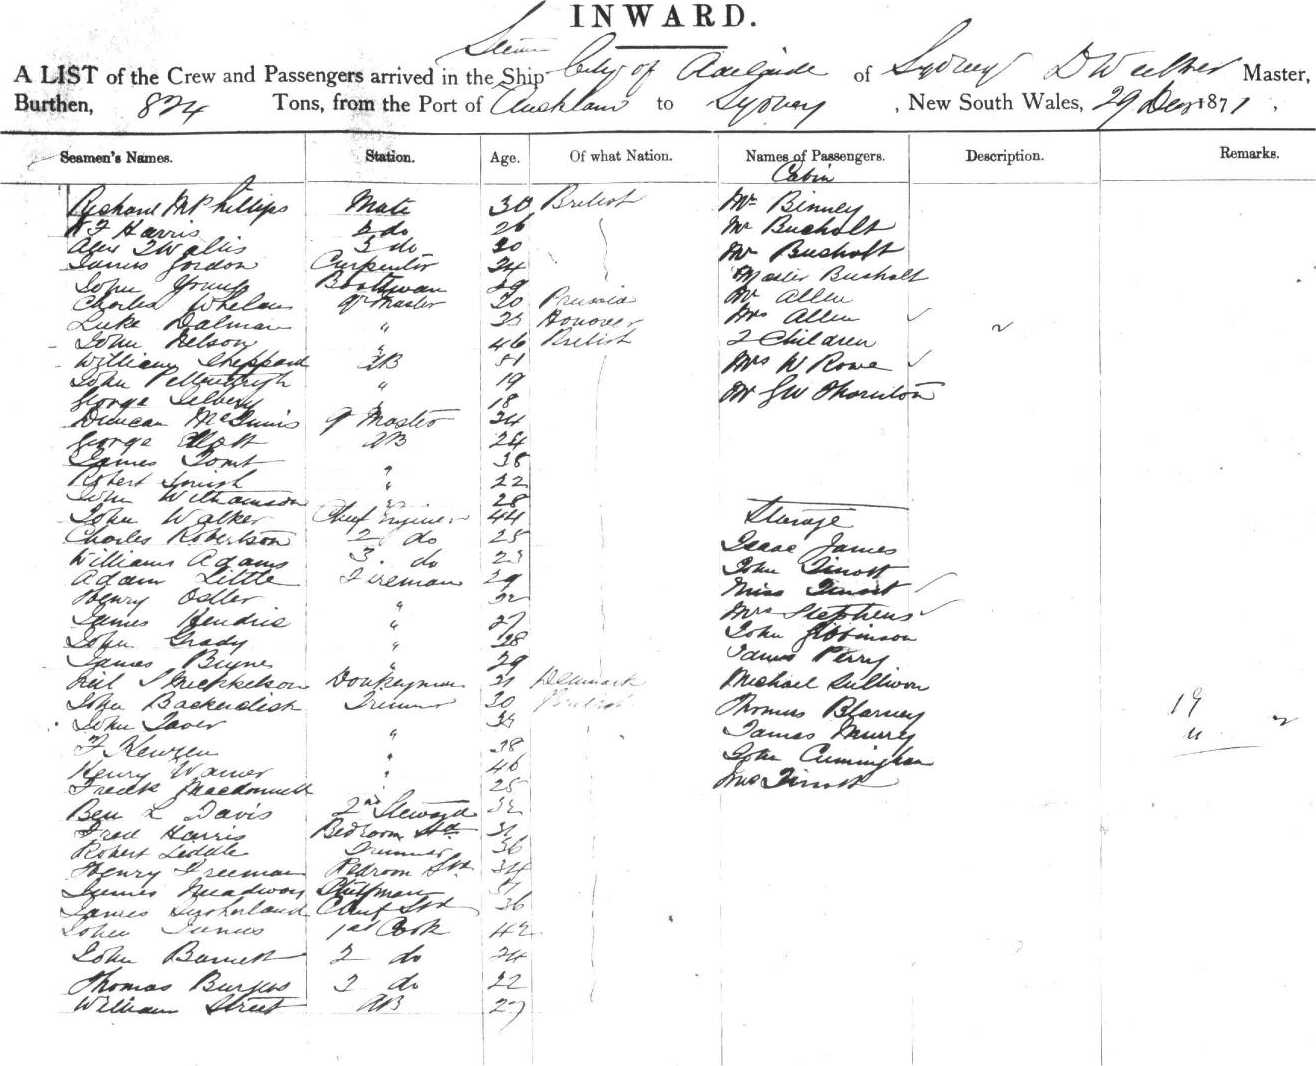 INWARD.
Steam
A LIST of the Crew and Passengers arrived in the Ship City of Adelaide of Sydney D Walker Master,
Burthen, 824 Tons, from the Port of Auckland to Sydney, New South Wales, 29 Decr 1871,
Seamen's Names. Station. Age. Of what Nation. Names of Passengers. Description. Remarks.
Cabin
Richard McPhillips Mate 30 British Mr Binney
W F Harris 2 do 26 Mr Bucholt
Alex T Wallis 3 do 20 Mr Bucholt
James Gordon Carpenter 24 Master Bucholt
John Young Boatswan 29
Charles Whelan Qr Master 20 Prussia Mr Allen
Luke Dalman " 25 Hanover Mrs Allen
John Nelson " 46 British 2 Children
William Sheppard AB 51 Mrs W Rowe
John " 19 Mr GW Thornton
George " 18
Duncan McInnis Qr Master 34
George AB 24
James 38
Robert " 22
John Williamson " 28
John Walker Chief Engineer 44 Sterage
Charles Robertson 2 do 25
William Adams 3. do 23 Isaac James
Adam Little Fireman 29 John Tinott
Henry Osler " 32 Miss Tinott
James Hendrie " 27 Mrs Stephens
John Grady " 28 John
James Byrne " 29 James Perry
Neil S Mickkelson Donkeyman 31 Denmark Michael Sullivan
John Backendish Trimmer 30 British Thomas Blarney 19
John Taver " 35 James Murry 11
F " 38 John Cuningham
Henry Warner " 46 Mrs Tinott
Fredk Macdonnell " 25
Ben L Davis 2nd Steward 32
Fred Harris Bedroom Std 31
Robert Liddle Trimmer 36
Henry Freeman Bedroom Std 34
James Meadway 51
James Sutherland Chief Std 36
John 1st Cook 42
John Barnett 2 do 24
Thomas Burgess 3 do 22
William Street AB 27